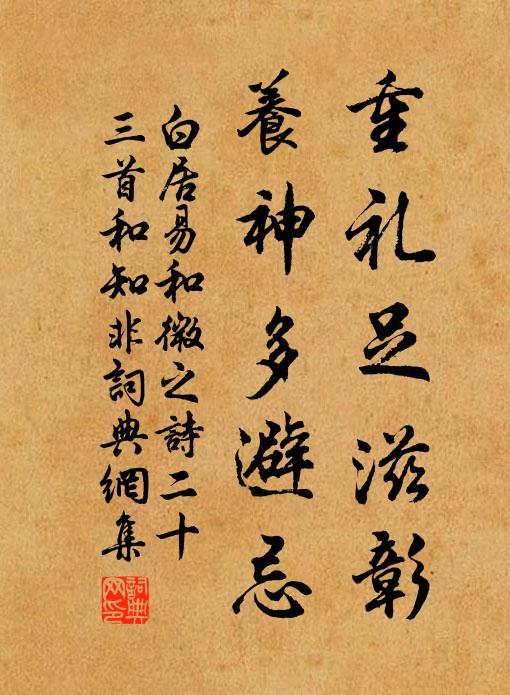 重礼足滋彰
養神多避忌
白居易和微之詩二十
三首和知非詞典網集
詞典
网印